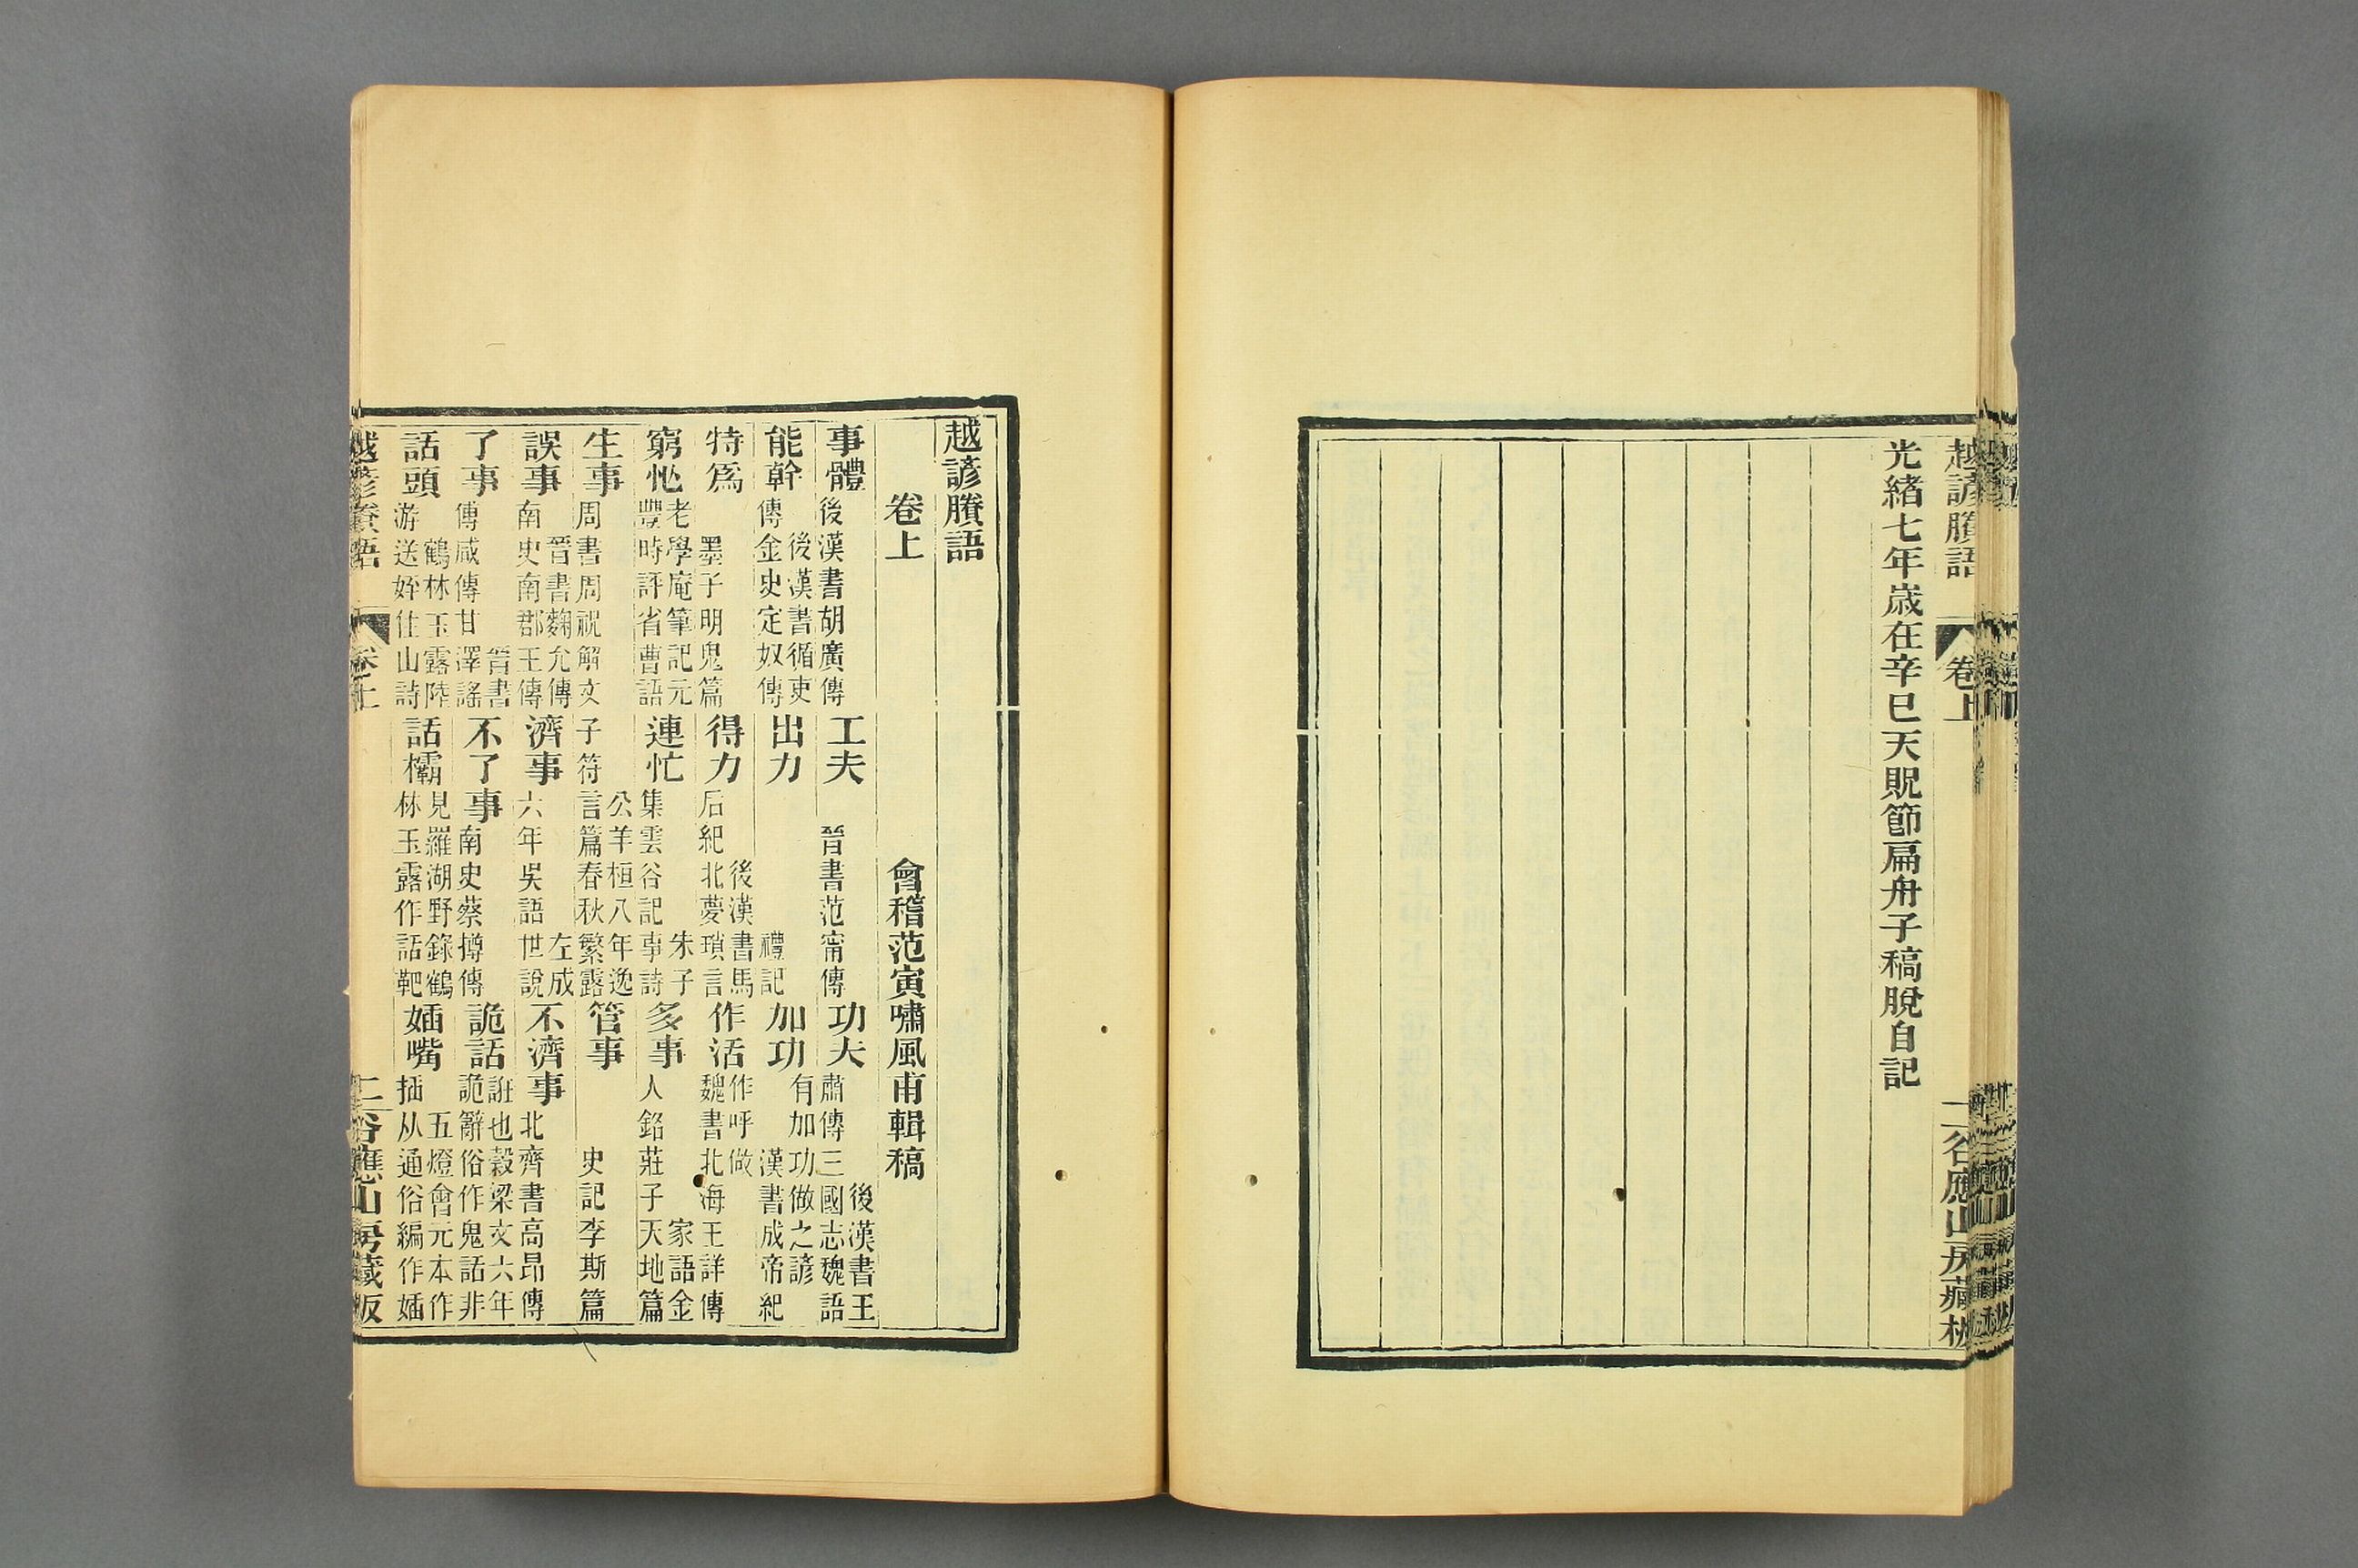 越諺賸語 卷上 二谷應山房藏板
光緒七年歲在辛巳天貺節扁舟子稿脫自記
越諺賸語
卷上 會稽范寅嘯風甫輯稿
事體 後漢書胡廣傳 工夫 晉書范甯傳 功夫 後漢書王肅傳三國志魏語
能幹 後漢書循吏傳金史定奴傳 出力 禮記 加功 有加功做之諺漢書成帝紀
特爲 墨子明鬼篇 得力 後漢書馬后紀北夢瑣言 作活 作呼做魏書北海王詳傳
窮忙 老學庵筆記元豐時評省曹語 連忙 朱子集雲谷記事詩 多事 家語金人銘莊子天地篇
生事 公羊桓八年逸周書周祝解文子符言篇春秋繁露 管事 史記李斯篇
誤事 晉書麴允傳南史南郡王傳 濟事 左成六年吳語世說 不濟事 北齊書高昂傳
了事 晉書傅咸傳甘澤謠 不了事 南史蔡撙傳 詭話 誑也穀梁文六年詭辭俗作鬼話非
話頭 鶴林玉露陸游送姪住山詩 話欛 見羅湖野錄鶴林玉露作話靶 㛼嘴 五燈會元本作插从通俗編作㛼
越諺賸語 卷上 二谷應山房藏板